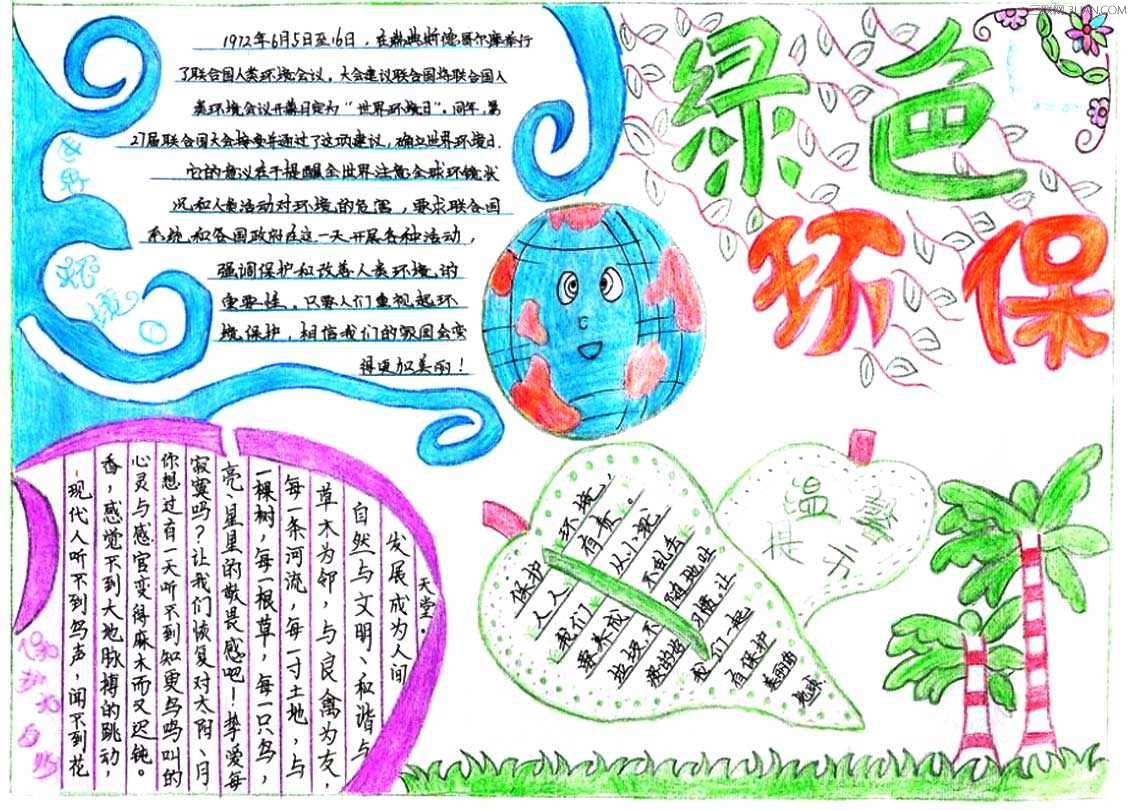 三联网 3LIAN.COM
绿色
环保
1972年6月5日至16日，在瑞典斯德哥尔摩举行
了联合国人类环境会议。大会建议联合国将联合国人
类环境会议开幕日定为“世界环境日”。同年，第
27届联合国大会接受并通过了这项建议，确立世界环境日.
它的意议在于提醒全世界注意全球环镜状
况和人类活动对环境的危害，要求联合国
系统和各国政府在这一天开展各种活动，
强调保护和改善人类环境的
重要性。只要人们重视起环
境保护，相信我们的家国会变
得更加美丽！
现代人听不到鸟声，闻不到花
香，感觉不到大地脉搏的跳动，
心灵与感官变得麻木而又迟钝。
你想过有一天听不到知更鸟鸣叫的
寂寞吗？让我们恢复对太阳、月
亮、星星的敬畏感吧！挚爱每
一棵树，每一根草，每一只鸟，
每一条河流，每一寸土地，与
草木为邻，与良禽为友，
自然与文明、和谐与
发展成为人间
天堂。
保护大自然
温馨
提示
保护环境，
人人有责。
我们从小就
要养成不乱丢
垃圾不随地吐
痰的好习惯。让
我们一起
有保护
美丽的
地球